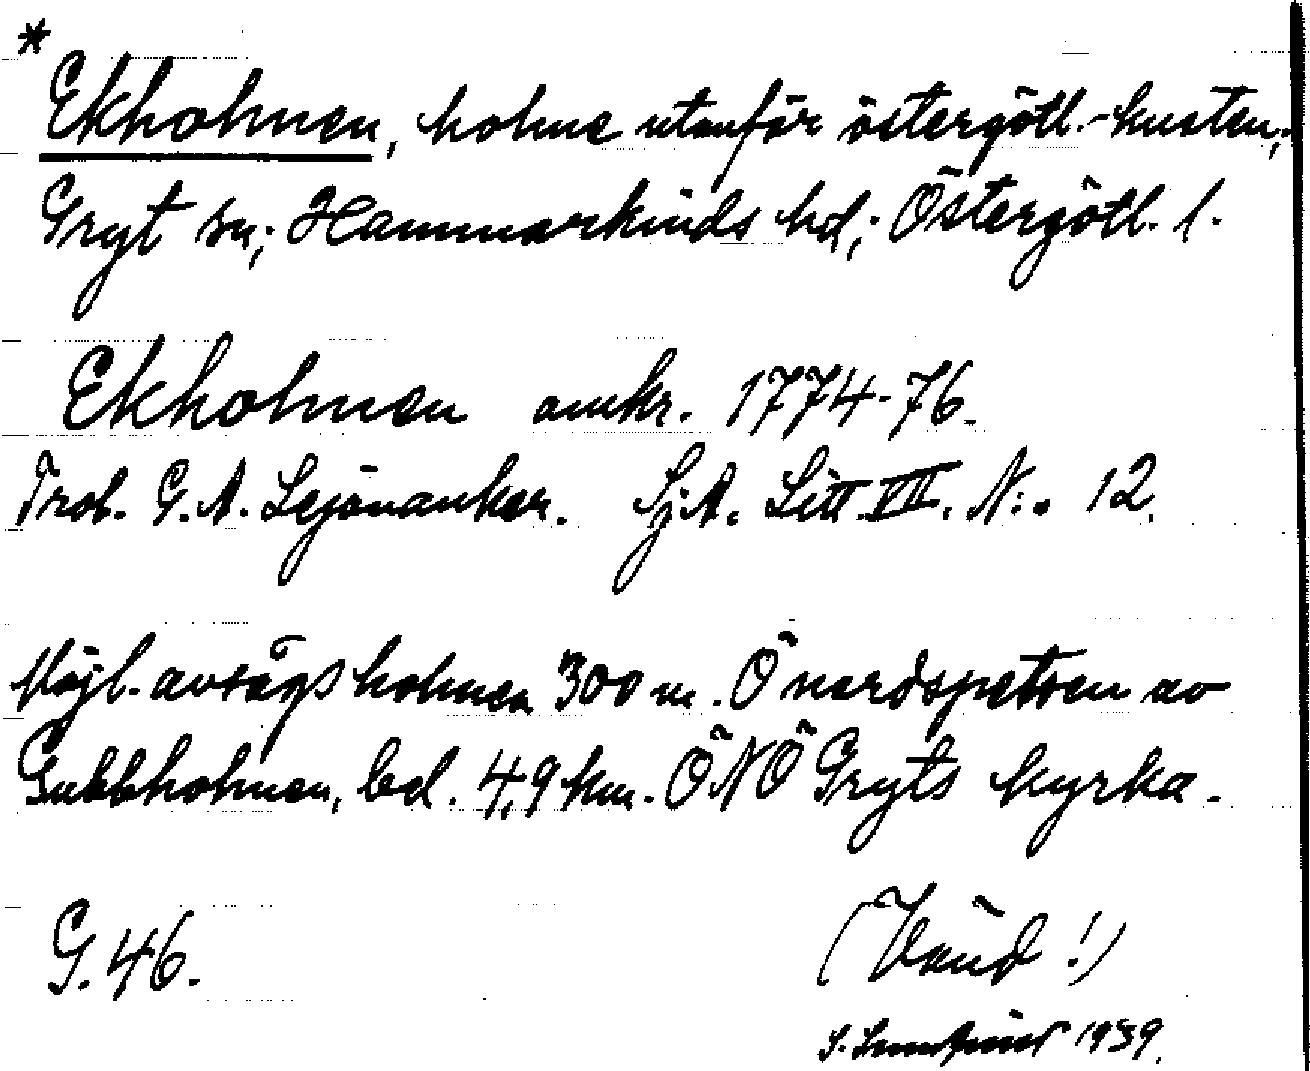 *
Ekholmen, holme utanför östergötl.-kusten,
Gryt sn; Hammarkinds hd; Östergötl. l.
Ekholmen omkr. 1774-76.
Trol. G. A. Lejonanker. Sj.A. Litt. VII. N:o 12.
Möjl. avsågs holmen 300 m. Ö nordspetsen av
Gubbholmen, bel. 4,9 km. ÖNÖ Gryts kyrka.
G. 46.
(Vänd!)
S. 1939.